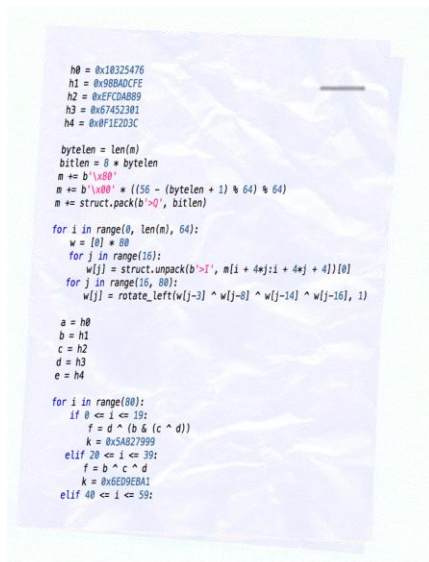 h0 = 0x10325476
h1 = 0x98BADCFE
h2 = 0xEFCDAB89
h3 = 0x67452301
h4 = 0x0F1E2D3C
bytelen = len(m)
bitlen = 8 * bytelen
m += b'\x80'
m += b'\x00' * ((56 - (bytelen + 1) % 64) % 64)
m += struct.pack(b'>Q', bitlen)
for i in range(0, len(m), 64):
w = [0] * 80
for j in range(16):
w[j] = struct.unpack(b'>I', m[i + 4*j:i + 4*j + 4])[0]
for j in range(16, 80):
w[j] = rotate_left(w[j-3] ^ w[j-8] ^ w[j-14] ^ w[j-16], 1)
a = h0
b = h1
c = h2
d = h3
e = h4
for i in range(80):
if 0 <= i <= 19:
f = d ^ (b & (c ^ d))
k = 0x5A827999
elif 20 <= i <= 39:
f = b ^ c ^ d
k = 0x6ED9EBA1
elif 40 <= i <= 59: